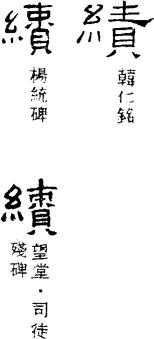 績
韓仁銘
續
楊統碑
續
望堂·司徒
殘碑